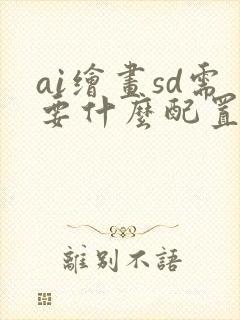 ai繪畫sd需
要什麼配置
離別不語